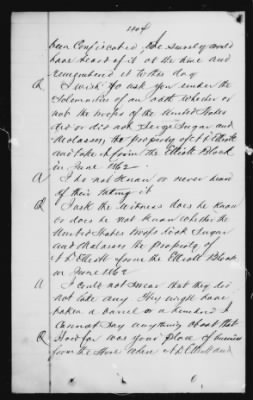 been Confiscated, he surely would
have heard of it at the time and
remembered it to this day
Q I wish to ask you under the
solemnities of an oath whether or
not the troops of the United States
did or did not seize Sugar and
Molasses, the property of A. D. Elliott
and take it from the Elliott Block
in June 1862
A I do not know or never heard
of their taking it
Q I ask the witness does he know
or does he not know whether the
United States troops took Sugar
and Molasses the property of
A. D. Elliott from the Elliott Block
in June 1862
A I could not swear that they did
not take any They might have
taken a barrel or a hundred I
Cannot say anything about that
Q How far was your place of business
from the Store where A. D. Elliott